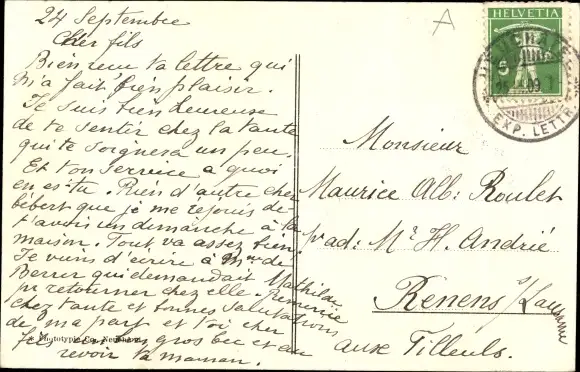 24 Septembre
Cher fils
Bien reçu ta lettre qui
m'a fait bien plaisir.
Je suis bien heureuse
de te sentir chez ta tante
qui te soignera un peu.
Et ton service a quoi
en es-tu. Rien d'autre cher
bébert que je me réjouis de
t'avoir un dimanche à la
maison. Tout va assez bien.
Je viens d'écrire à Mme de
Berrer qui demandait Mathilde
pr retourner chez elle. Remercie
cher tante et bonnes salutations
de ma part et toi cher
fils un gros bec et au
revoir ta maman.
Phototypie Co., Neuchâtel
A
HELVETIA
5
NEUCHATEL
09
EXP. LETTR.
Monsieur
Maurice Alb: Roulet
pr ad: Mr H. Andrié
Renens s/Lausanne
aux Tilleuls.